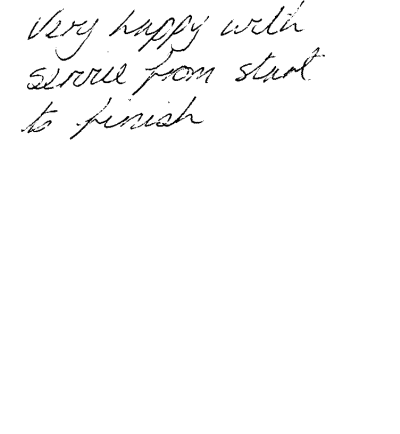 Very happy with
service from start
to finish